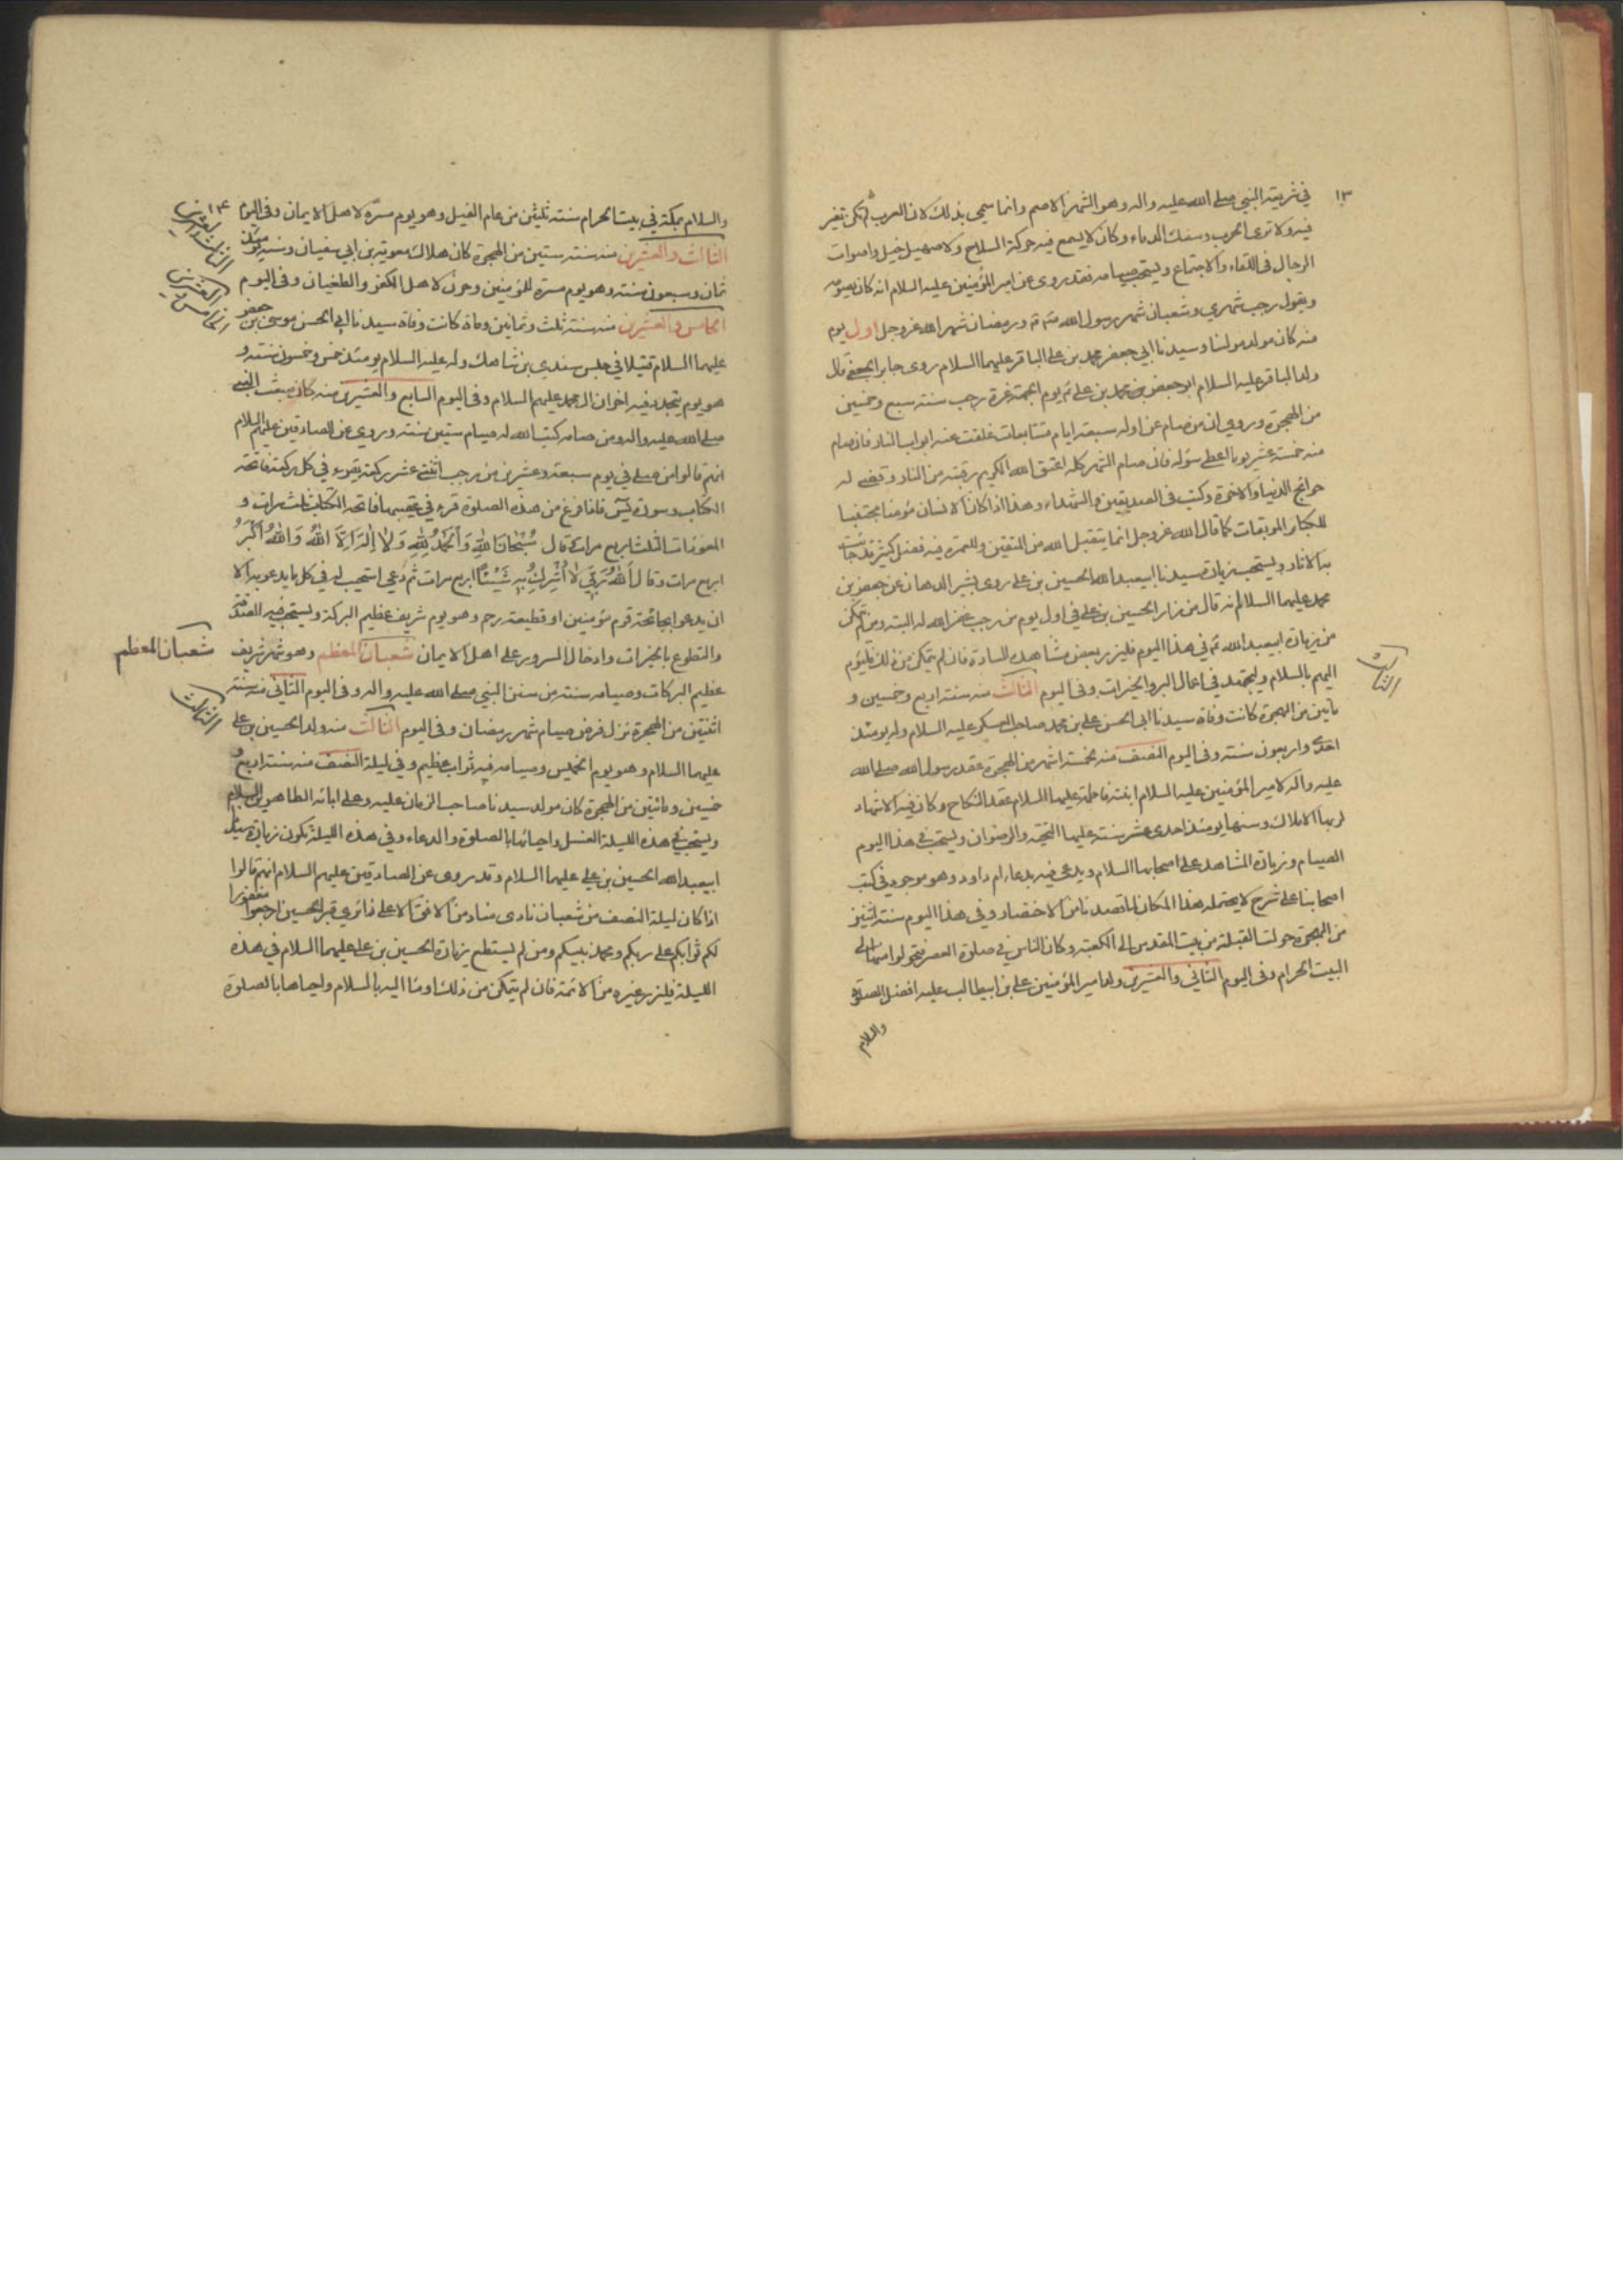 ١٣
في شريعة النبي صلى الله عليه واله وهو الشهر الاصم وانما سمي بذلك لان العرب لم تكن تغير
فيه ولا ترى الحرب وسفك الدماء وكان لا يسمع فيه حركة السلاح ولا صهيل خيل واصوات
الرجال في اللقاء والاجتماع ويستحب صيامه فقد روى عن امير المؤمنين عليه السلام انه كان يصومه
ويقول رجب شهري وشعبان شهر رسول الله ورمضان شهر الله عز وجل اول يوم
منه كان مولد مولنا وسيدنا ابي جعفر محمد بن علي الباقر عليهما السلام روى جابر الجعفي قال
ولد الباقر عليه السلام ابو جعفر محمد بن علي يوم الجمعة غرة رجب سنة سبع وخمسين
من الهجرة وروي ان من صام عن اوله سبعة ايام متتابعات غلقت عنه ابواب النار فان صام
منه خمسة عشر يوما اعطي سؤله فان صام الشهر كله اعتق الله الكريم رقبته من النار وقضى له
حوائج الدنيا والاخرة وكتب في الصديقين والشهداء وهذا اذا كان الانسان مؤمنا مجتنبا
للكبائر الموبقات كما قال الله عز وجل انما يتقبل الله من المتقين وللعمرة فيه فضل كثير قد جائت
به الاثار ويستحب زيارة سيدنا ابيعبد الله الحسين بن علي روى بشير الدهان عن جعفر بن
محمد عليهما السلام انه قال من زار الحسين بن علي في اول يوم من رجب غفر الله له البتة ومن لم يتمكن
من زيارة ابيعبد الله في هذا اليوم فليزر بعض مشاهد السادة فان لم يتمكن من ذلك فليؤم
اليهم بالسلام وليجتهد في اعمال البر والخيرات وفي اليوم الثالث منه سنة اربع وخمسين و
الثالث
ماتين من الهجرة كانت وفاة سيدنا ابي الحسن علي بن محمد صاحب العسكر عليه السلام وله يومئذ
احدى واربعون سنة وفي اليوم النصف منه لخمسة اشهر من الهجرة عقد رسول الله صلى الله
عليه واله لامير المؤمنين عليه السلام ابنته فاطمة عليها السلام عقد النكاح وكان فيه الاشهاد
لربها الاملاك وسنها يومئذ احدى عشر سنة عليها التحية والرضوان ويستحب في هذا اليوم
الصيام وزيارة المشاهد على اصحابها السلام ويدعى فيه بدعاء ام داود وهو موجود في كتب
اصحابنا على شرح لا يحتمله هذا المكان لما قصدنا من الاختصار وفي هذا اليوم سنة اثنين
من الهجرة حولت القبلة من بيت المقدس الى الكعبة وكان الناس في صلوة العصر فتحولوا منها الى
البيت الحرام وفي اليوم الثاني والعشرين ولد امير المؤمنين علي بن ابيطالب عليه افضل الصلوة
والسلام
١٤
والسلام بمكة في بيت الحرام سنة ثلثين من عام الفيل وهو يوم مسرة لاهل الايمان وفي اليوم
الثالث والعشرين
الثالث والعشرين منه سنة ستين من الهجرة كان هلاك معوية بن ابي سفيان وسنه يومئذ
ثمان وسبعون سنة وهو يوم مسرة للمؤمنين وحزن لاهل الكفر والطغيان وفي اليوم
الخامس والعشرين
الخامس والعشرين منه سنة ثلث وثمانين وماة كانت وفاة سيدنا ابي الحسن موسى بن جعفر
عليهما السلام قتيلا في حبس سندي بن شاهك وله عليه السلام يومئذ خمس وخمسون سنة و
هو يوم يتجدد فيه احزان ال محمد عليهم السلام وفي اليوم السابع والعشرين منه كان مبعث النبي
صلى الله عليه واله ومن صامه كتب الله له صيام ستين سنة وروي عن الصادقين عليهم السلام
انهم قالوا من صلى في يوم سبعة وعشرين من رجب اثنتي عشر ركعة يقرء في كل ركعة فاتحة
الكتاب وسورة يس فاذا فرغ من هذه الصلوة قرء في عقيبها فاتحة الكتاب ثلث مرات و
المعوذات الثلث اربع مرات وقال سُبْحَانَ اللهِ وَالْحَمْدُ لِلهِ وَلَا اِلٰهَ اِلَّا اللهُ وَاللهُ اَكْبَرُ
اربع مرات وقال اَللهُ رَبِّي لَا اُشْرِكُ بِهِ شَيْئًا اربع مرات ثم دعى استجيب له في كل ما يدعو به الا
ان يدعو بجائحة قوم مؤمنين او قطيعة رحم وهو يوم شريف عظيم البركة ويستحب فيه الصدقة
والتطوع بالخيرات وادخال السرور على اهل الايمان شعبان المعظم وهو شهر شريف
شعبان المعظم
عظيم البركات وصيامه سنة من سنن النبي صلى الله عليه واله وفي اليوم الثاني منه سنة
الثالث
اثنتين من الهجرة نزل فرض صيام شهر رمضان وفي اليوم الثالث منه ولد الحسين بن علي
عليهما السلام وهو يوم الخميس وصيامه فيه ثواب عظيم وفي ليلة النصف منه سنة اربع و
خمسين وماتين من الهجرة كان مولد سيدنا صاحب الزمان عليه وعلى ابائه الطاهرين السلام
ويستحب في هذه الليلة الغسل واحيائها بالصلوة والدعاء وفي هذه الليلة تكون زيارة سيدنا
ابيعبد الله الحسين بن علي عليهما السلام وقد روى عن الصادقين عليهم السلام انهم قالوا
اذا كان ليلة النصف من شعبان نادى مناد من الافق الاعلى زائري قبر الحسين ارجعوا مغفورا
لكم ثوابكم على ربكم ومحمد نبيكم ومن لم يستطع زيارة الحسين بن علي عليهما السلام في هذه
الليلة فليزر غيره من الائمة فان لم يتمكن من ذلك اومأ اليه بالسلام واحياها بالصلوة